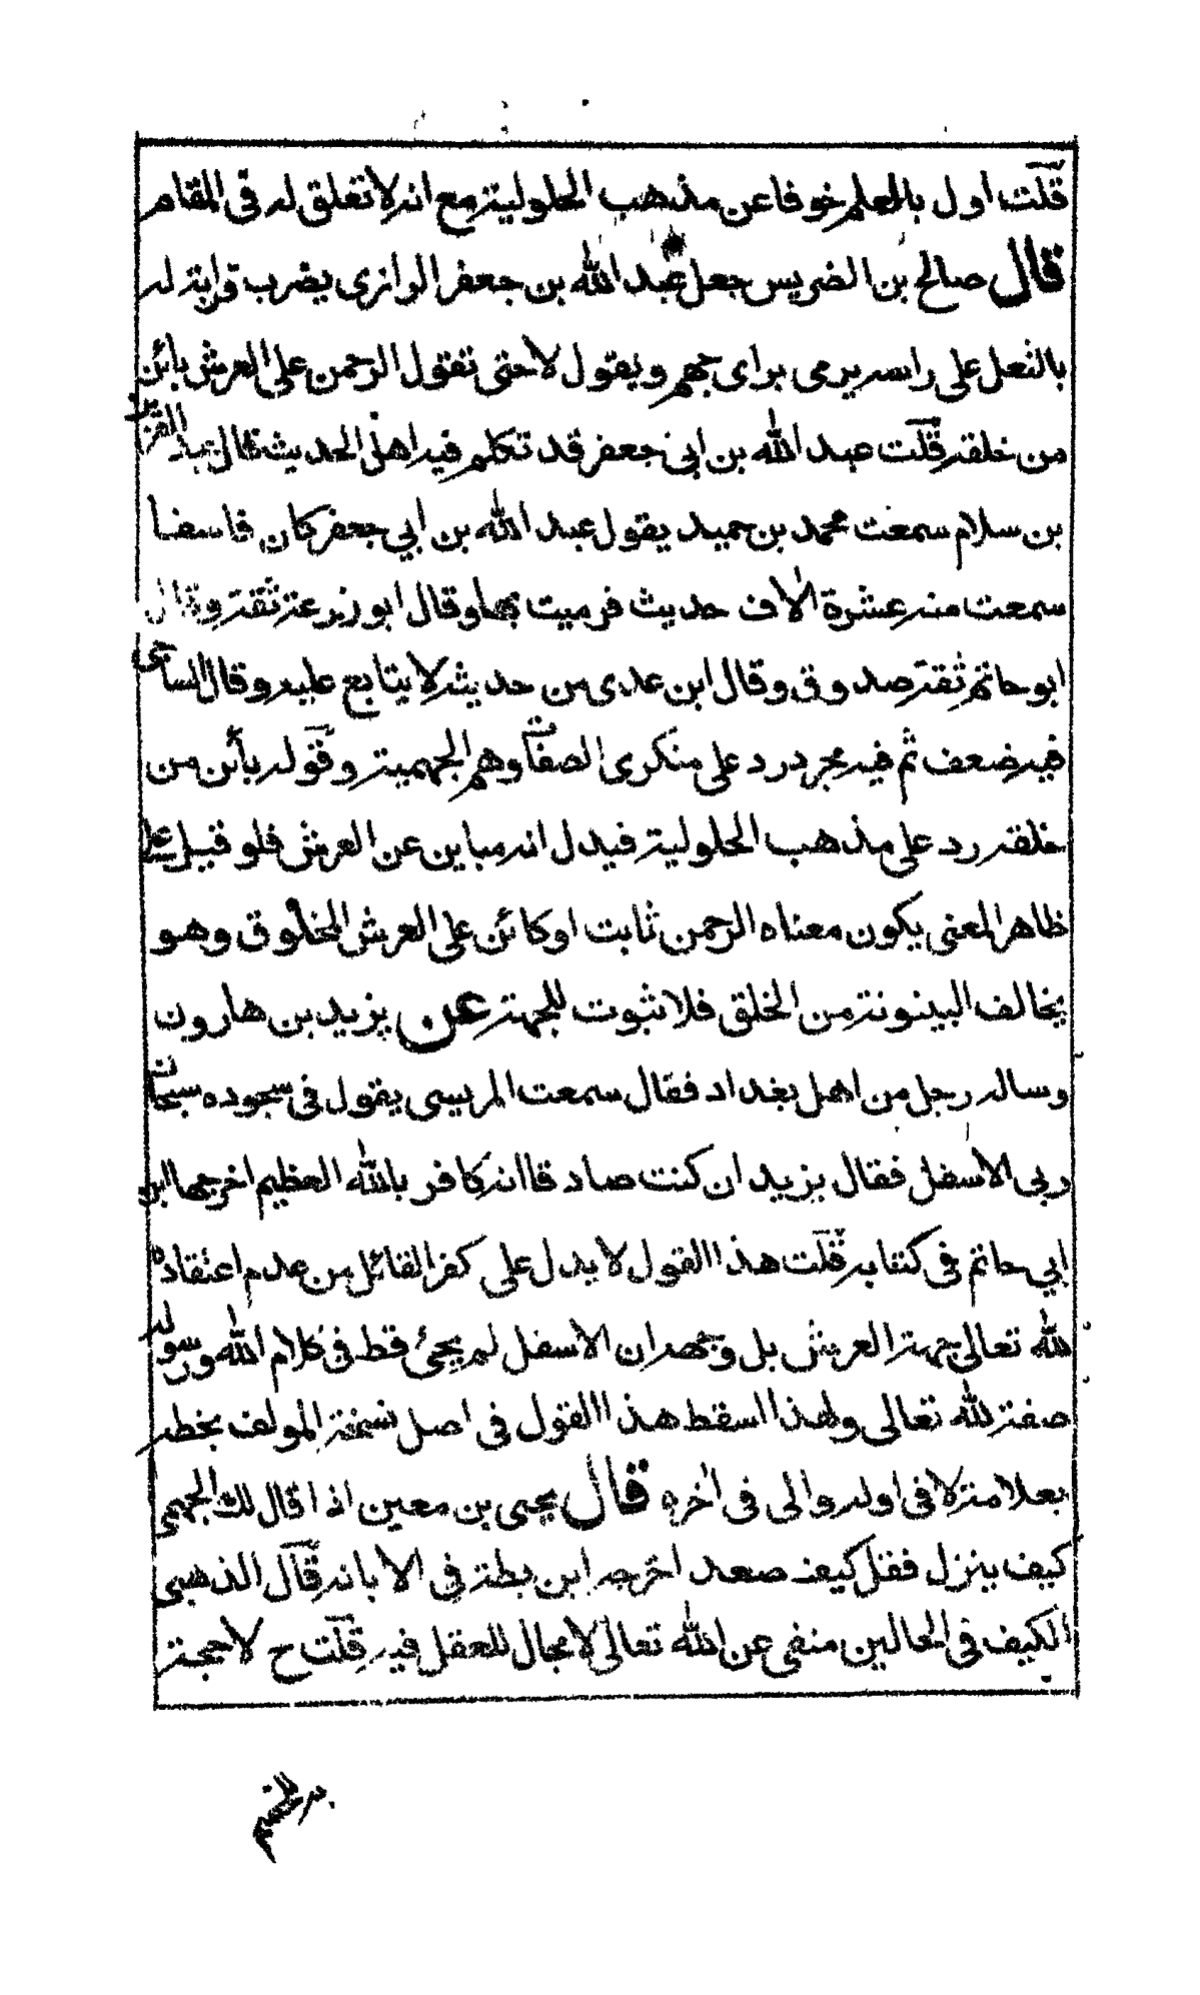 قلت اول بالعلم خوفا عن مذهب الحلولية مع انه لا تعلق له في المقام
قال صالح بن الضريس جعل عبد الله بن جعفر الرازى يضرب قرابة له
بالنعل على راسه يرمى براى جهم ويقول لا حتى تقول الرحمن على العرش بائن
من خلقه قلت عبد الله بن ابى جعفر قد تكلم فيه اهل الحديث قال عبد العزيز
بن سلام سمعت محمد بن حميد يقول عبد الله بن ابي جعفر كان فاسقا
سمعت منه عشرة الاف حديث فرميت بها وقال ابو زرعة ثقة وقال
ابو حاتم ثقة صدوق وقال ابن عدى من حديثه لا يتابع عليه وقال الساجى
فيه ضعف ثم فيه مجرد رد على منكرى الصفات وهم الجهمية وقوله بائن من
خلقه رد على مذهب الحلولية فيدل انه مباين عن العرش فلو قيل على
ظاهر المعنى يكون معناه الرحمن ثابت او كائن على العرش المخلوق وهو
يخالف البينونة من الخلق فلا ثبوت للجهة عن يزيد بن هارون
وساله رجل من اهل بغداد فقال سمعت المريسى يقول في سجوده سبحان
ربى الاسفل فقال يزيد ان كنت صادقا انه كافر بالله العظيم اخرجها ابن
ابي حاتم في كتابه قلت هذا القول لا يدل على كفر القائل من عدم اعتقاده
لله تعالى جهة العرش بل وجهه ان الاسفل لم يجئ قط في كلام الله ورسوله
صفة لله تعالى ولهذا اسقط هذا القول في اصل نسخة المولف بخطه
بعلامة لا في اوله والى في اخره قال يحيى بن معين اذا قال لك الجهمى
كيف ينزل فقل كيف صعد اخرجه ابن بطة في الابانة قال الذهبى
الكيف في الحالين منفى عن الله تعالى لا مجال للعقل فيه قلت ح لا حجة